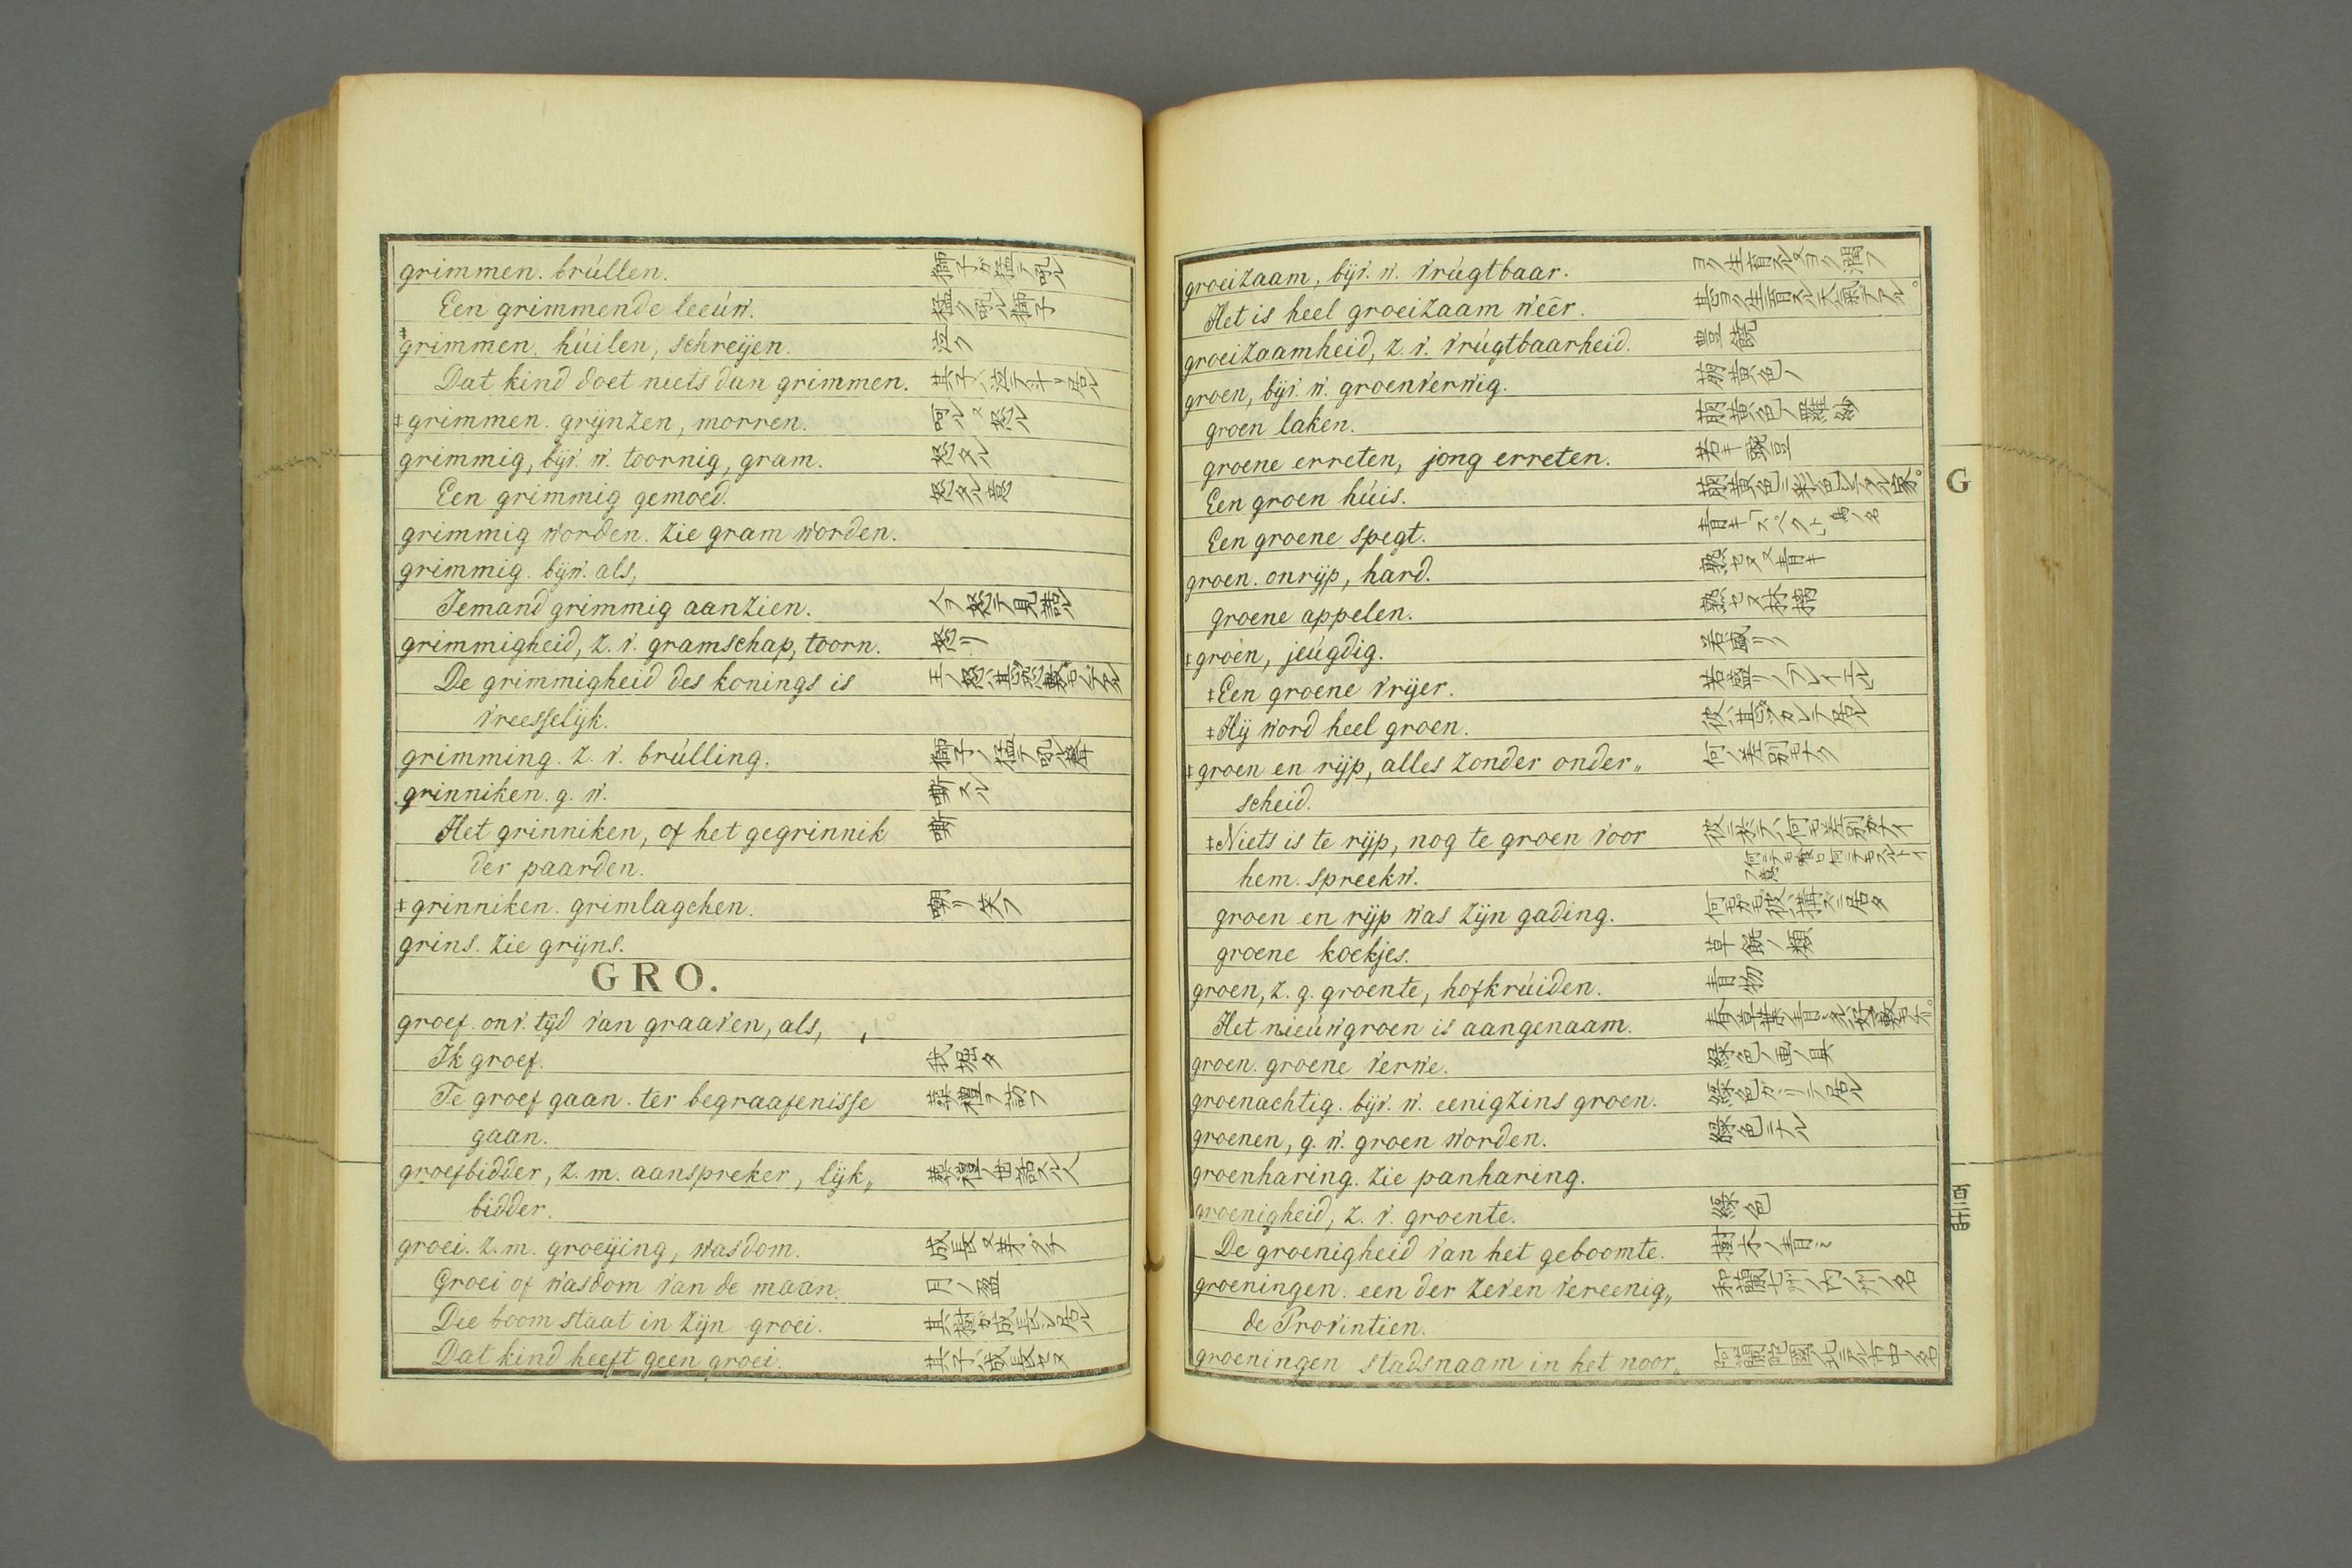 grimmen. brúllen. 獅子ガ猛テ吼ル
Een grimmende leeúw. 猛ク吼ル獅子
‡grimmen. húilen, schreijen. 泣ク
Dat kind doet niets dan grimmen. 其子ハ泣テ斗リ居ル
‡grimmen. grijnzen, morren. 呵ル又怒ル
grimmig, bijv. w. toornig, gram. 怒タル
Een grimmig gemoed. 怒タル意
grimmig worden. zie gram worden.
grimmig. bijw. als,
Iemand grimmig aanzien. 人ヲ怒テ見ル
grimmigheid, z. v. gramschap, toorn. 怒リ
De grimmigheid des konings is 王ノ怒ハ甚恐敷
vreesselijk.
grimming. z. v. brúlling. 獅子ノ猛テ吼ル聲
grinniken. g. w. 嘶スル
Het grinniken, of het gegrinnik 嘶
der paarden.
‡grinniken. grimlagchen. 嘲リ笑フ
grins. zie grijns.
GRO.
groef. onv. tijd van graaven, als,
Ik groef. 我堀タ
Te groef gaan. ter begraafenisse 葬禮ヲ訪フ
gaan.
groefbidder, z. m. aanspreker, lijk„ 葬禮ノ世話スル人
bidder.
groei. z. m. groeijing, wasdom. 成長又芽ダチ
Groei of wasdom van de maan. 月ノ盈
Die boom staat in zijn groei. 其樹ガ成長シ居ル
Dat kind heeft geen groei. 其子ハ成長セヌ
groeizaam, bijv. w. vrúgtbaar. ヨク生育スル又ヨク潤フ
Het is heel groeizaam wêêr. 甚ヨク生育スル天氣デアル。
groeizaamheid, z. v. vrúgtbaarheid. 豊饒
groen, bijv. w. groenverwig. 萠黄色ノ
groen laken. 萠黄色ノ羅紗
groene erreten, jong erreten. 若キ豌豆
Een groen húis. 萠黄色ニ彩色シテアル家。
Een groene spegt. 青キ「スペクト」鳥ノ名
groen. onrijp, hard. 熟セヌ又青キ
groene appelen. 熟セヌ林檎
‡groen, jeúgdig. 若盛リノ
‡Een groene vrijer. 若盛リノ「フレイエル」
‡Hij word heel groen. 彼ハ甚
‡groen en rijp, alles zonder onder„ 何ノ差別モナク
scheid.
‡Niets is te rijp, nog te groen voor 彼ニ於テハ何モ差別ガナイ
hem. spreekw.
groen en rijp was zijn gading. 何モカモ彼ハ構ハズニ居タ
groene koekjes. 草餅ノ類
groen, z. g. groente, hofkrúiden. 青物
Het nieúwgroen is aangenaam. 春ノ草葉ノ青ミ
groen. groene verwe. 緑色ノ画ノ具
groenachtig. bijv. w. eenigzins groen. 緑色ガヽリテ居ル
groenen, g. w. groen worden. 緑色ニナル
groenharing. zie panharing.
groenigheid, z. v. groente. 緑色
De groenigheid van het geboomte. 樹木ノ青ミ
groeningen. een der zeven vereenig„ 和蘭七州ノ内ノ州ノ名
de Provintien.
groeningen stadsnaam in het noor„ 阿蘭陀國ノ北ニアル市中ノ名
G